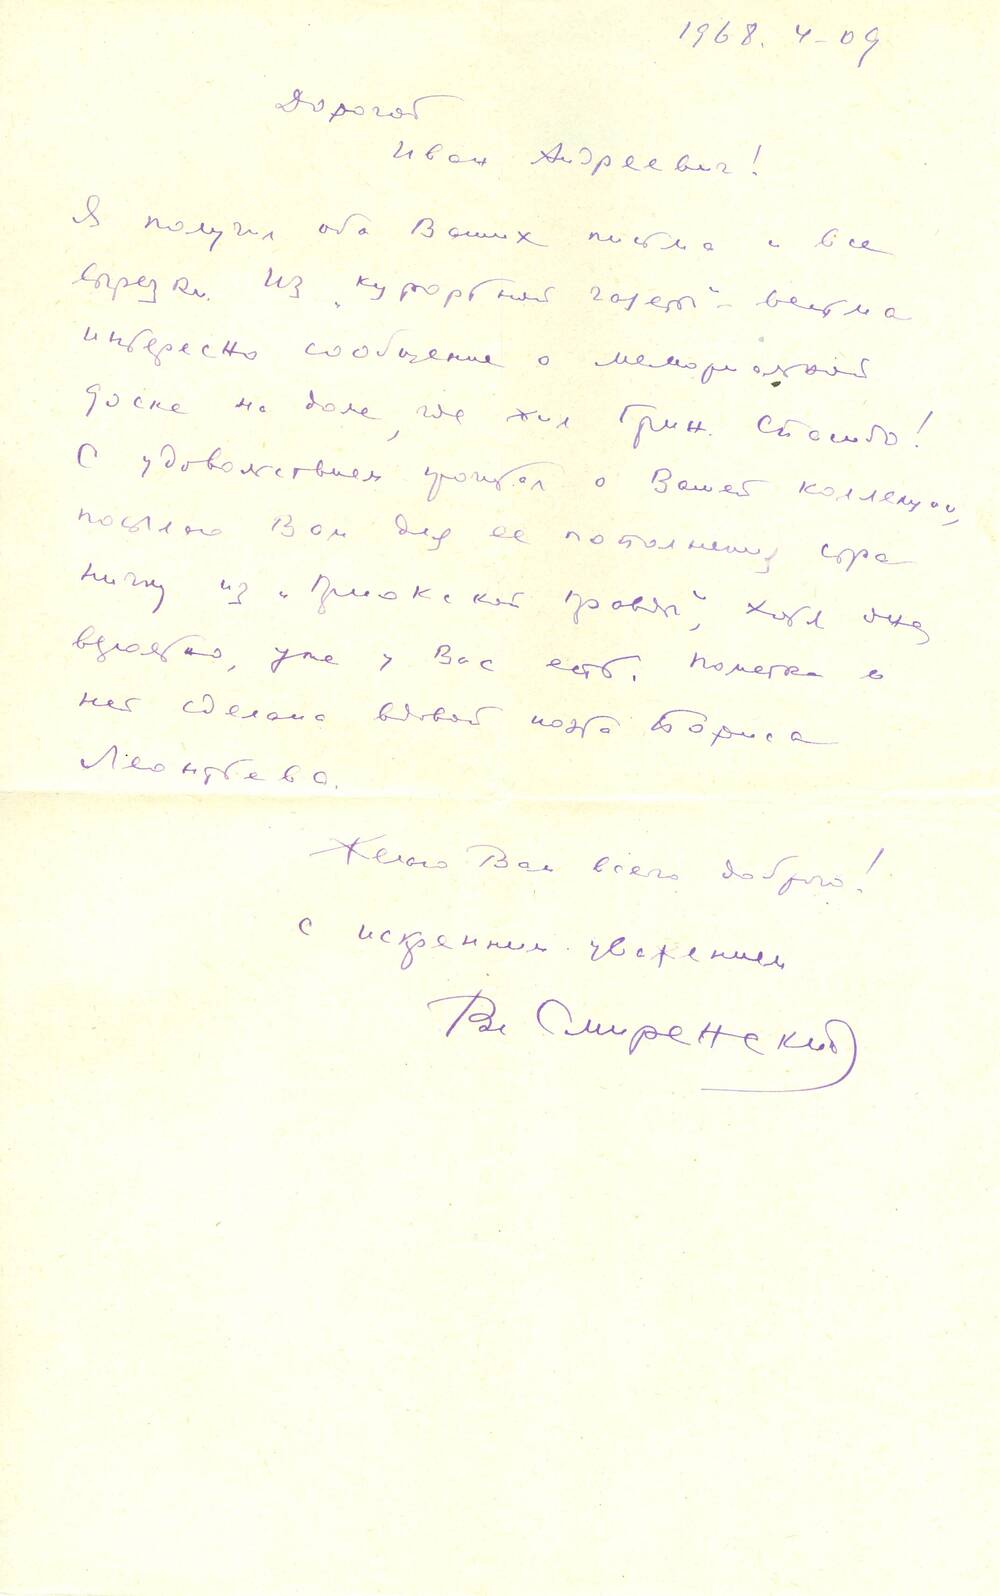 1968. 4-09
Дорогой
Иван Андреевич!
Я получил оба Ваших письма и все
вырезки. Из „Курортной газеты" - весьма
интересно сообщение о мемориальной
доске на доме, где жил Грин. Спасибо!
С удовольствием прочитал о Вашей коллекции,
посылаю Вам для ее пополнения стра
ничку из „Приокской правды", хотя она,
вероятно, уже у Вас есть. Пометка о
ней сделана вдовой поэта Бориса
Леонтьева.
Желаю Вам всего доброго!
С искренним уважением
Вл Смиренский